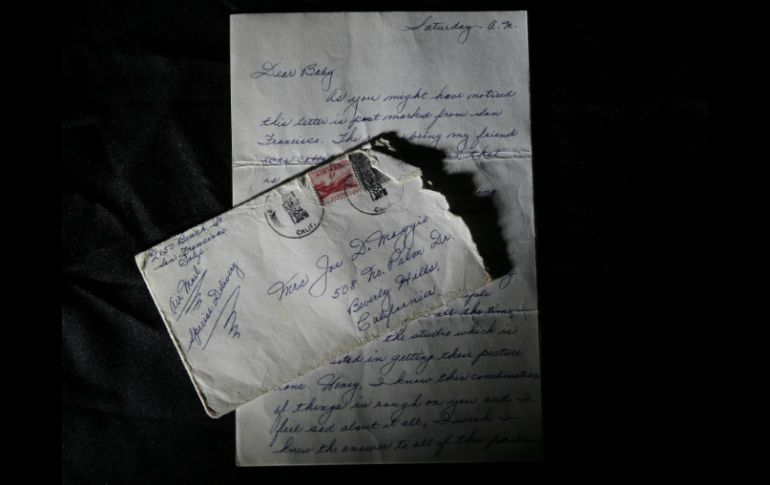 Saturday - A.M.
Dear Baby
As you might have noticed
this letter is post marked from San
Francisco. The being my friend
was that
is
2150 Beach St.
San Francisco
Calif.
Air Mail
Special Delivery
CALIF.
Mrs Joe D. Maggio
508 No. Palm Dr.
Beverly Hills,
California
all the time,
the studio which is
in getting their picture
one. Honey, I know this combination
of things is rough on you and I
feel sad about it all, I wish I
knew the answer to all of this